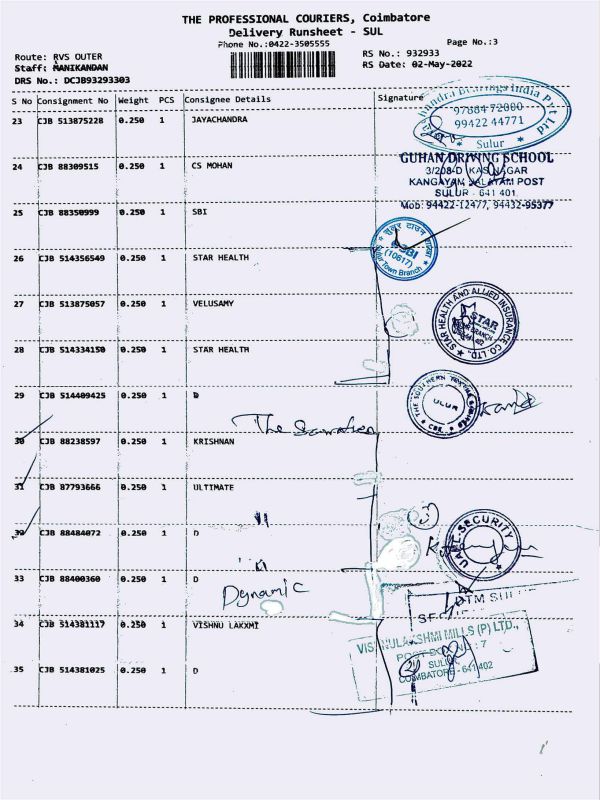 THE PROFESSIONAL COURIERS, Coimbatore
Delivery Runsheet - SUL
Phone No.:0422-3505555
Page No.:3
Route: RVS OUTER
RS No.: 932933
Staff: MANIKANDAN
RS Date: 02-May-2022
DRS No.: DCJB93293303
S No Consignment No Weight PCS Consignee Details Signature
23 CJB 513875228 0.250 1 JAYACHANDRA
97884 72000
99422 44771
Sulur
24 CJB 88309515 0.250 1 CS MOHAN
GUHAN DRIVING SCHOOL
3/208-D KAS NAGAR
KANGAYAM PALAYAM POST
SULUR - 641 401
Mob: 94422-12477, 94432-95377
25 CJB 88350999 0.250 1 SBI
SBI
(10617)
Sulur Town Branch
26 CJB 514356549 0.250 1 STAR HEALTH
27 CJB 513875057 0.250 1 VELUSAMY
STAR HEALTH AND ALLIED INSURANCE CO. LTD.
STAR
28 CJB 514334150 0.250 1 STAR HEALTH
29 CJB 514409425 0.250 1 D
The
30 CJB 88238597 0.250 1 KRISHNAN
31 CJB 87793666 0.250 1 ULTIMATE
32 CJB 88484072 0.250 1 D
SECURITY
33 CJB 88400360 0.250 1 D
Dynamic
34 CJB 514381117 0.250 1 VISHNU LAKXMI
VISHNULAKSHMI MILLS (P) LTD.,
SULUR
COIMBATORE - 641 402
35 CJB 514381025 0.250 1 D